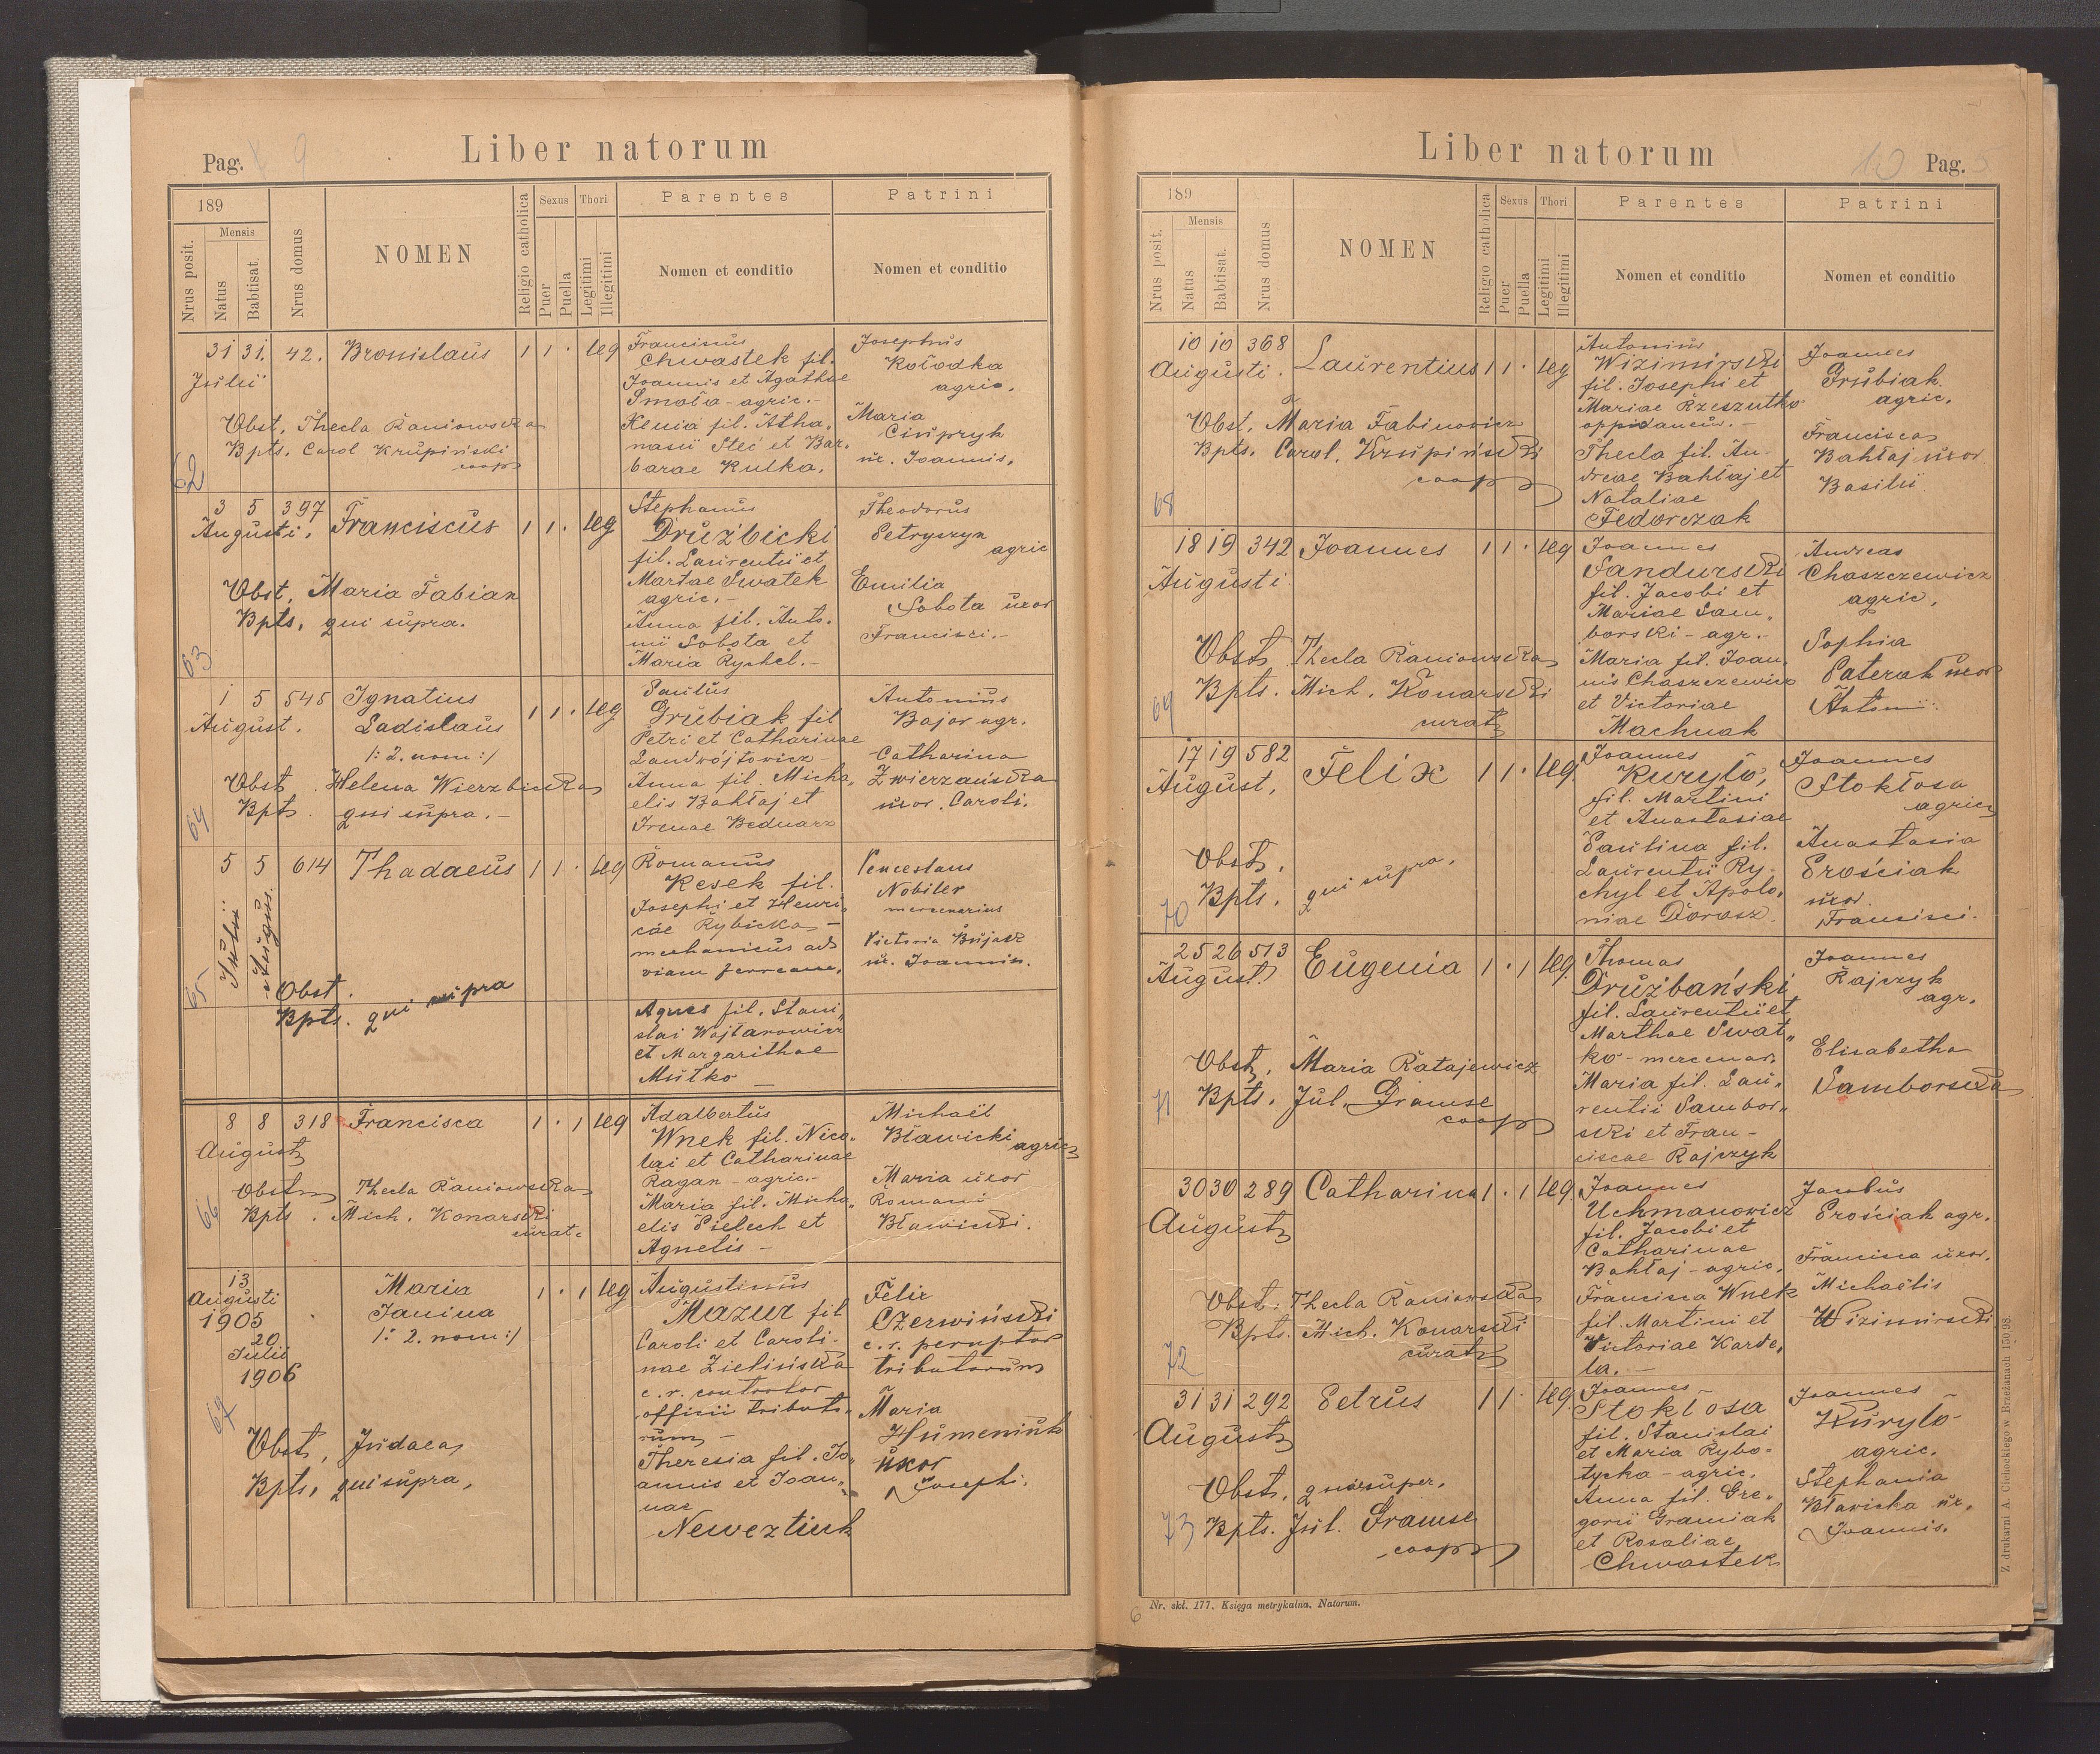 Pag. 9
Liber natorum
189
Nrus posit.
Mensis
Natus
Babtisat.
Nrus domus
NOMEN
Religio catholica
Sexus
Puer
Puella
Thori
Legitimi
Illegitimi
Parentes
Nomen et conditio
Patrini
Nomen et conditio
62
31 31. 42. Bronislaus 1 1 · leg
Julii
Obst. Thecla Raniowska
Bpts. Carol Krupiński
coop
Franciscus
Chwastek fil.
Joannis et Agathae
Smola - agric. -
Xenia fil. Atha„
nasii Stec et Bar„
barae Kulka.
Josephus
Kołodka
agric.
Maria
Ciupryk
ux. Joannis.
63
3 5 397 Franciscus 1 1 · leg
Augusti.
Obst. Maria Fabian
Bpts. qui supra.
Stephanus
Drużbicki
fil. Laurentii et
Martae Swatek
agric. -
Anna fil. Anto„
nii Sobota et
Maria Rychel. -
Theodorus
Petryszyn
agric
Emilia
Sobota uxor
Francisci. -
64
1 5 545 Ignatius 1 1 · leg
August. Ladislaus
/: 2. nom :/
Obst. Helena Wierzbicka
Bpt. qui supra. -
Paulus
Grubiak fil
Petri et Catharinae
Landwójtowicz -
Anna fil. Micha„
elis Bahłaj et
Irenae Bednarz
Antonius
Bajor agr.
Catharina
Zwierzańska
uxor. Caroli.
65
5 5 614 Thadaeus 1 1 · leg
Julii
August.
Obst.
Bpts. qui supra
Romanus
Kesek fil.
Josephi et Henri„
cae Rybicka -
mechanicus ad
viam ferream.
Agnes fil. Stani„
slai Wojtanowicz
et Margarithae
Mutko -
Venceslaus
Nobiler
mercenarius
Victoria Bujak
ux. Joannis.
66
8 8 318 Francisca 1 · 1 leg
August
Obst Thecla Raniowska
Bpts. Mich. Konarski
curat.
Adalbertus
Wnek fil. Nico„
lai et Catharinae
Ragan - agric. -
Maria fil. Micha„
elis Pielech et
Agnetis -
Michaël
Bławicki agric
Maria uxor
Romani
Bławicki.
67
13 Maria 1 · 1 leg
Augusti Janina
1905 /: 2. nom :/
20
Julii
1906
Obst. Judaea
Bpts. qui supra.
Augustinus
Mazur fil
Caroli et Caroli„
nae Zielińska
c. r. controlor
officii tributo„
rum -
Theresia fil. Jo„
annis et Joan„
nae
Neweztiuk
Felix
Czerwiński
c. r. peruptor
tributorum
Maria
Humeniuk
uxor
Josephi.
Liber natorum
10 Pag. 5
189
Nrus posit.
Mensis
Natus
Babtisat.
Nrus domus
NOMEN
Religio catholica
Sexus
Puer
Puella
Thori
Legitimi
Illegitimi
Parentes
Nomen et conditio
Patrini
Nomen et conditio
68
10 10 368 Laurentius 1 1 · leg
Augusti.
Obst. Maria Fabinowicz
Bpts. Carol. Krupiński
coop
Antonius
Wizimirski
fil. Josephi et
Mariae Rzeszutko
oppidaneus. -
Thecla fil. An„
dreae Bahłaj et
Nataliae
Fedorczak
Joannes
Grubiak
agric.
Francisca
Bahłaj uxor
Basilii
69
18 19 342 Joannes 1 1 · leg
Augusti
Obst. Thecla Raniowska
Bpts. Mich. Konarski
curat
Joannes
Sandurski
fil. Jacobi et
Mariae Sam„
borski - agr. -
Maria fil. Joan„
nis Chaszczewicz
et Victoriae
Machnak
Andreas
Chaszczewicz
agric.
Sophia
Paterak uxor
Antonii
70
17 19 582 Felix 1 1 · leg.
August.
Obst.
Bpts. qui supra.
Joannes
Kuryło,
fil. Martini
et Anastasiae
Paulina fil.
Laurentii Ry„
chyl et Apolo„
niae Dorosz.
Joannes
Stokłosa
agric
Anastasia
Prościak
uxor.
Francisci.
71
25 26 513 Eugenia 1 · 1 leg.
August
Obst. Maria Ratajewicz
Bpts. Jul. Gramse
coop
Thomas
Drużbański
fil. Laurentii et
Marthae Swat„
ko - mercenar.
Maria fil. Lau„
rentii Sambor„
ski et Fran -
ciscae Rajczyk
Joannes
Rajczyk
agr.
Elisabetha
Samborska
72
30 30 289 Catharina 1 · 1 leg.
August
Obst. Thecla Raniowska
Bpts. Mich. Konarski
curat
Joannes
Uchmanowicz
fil. Jacobi et
Catharinae
Bahłaj - agric.
Francisca Wnek
fil. Martini et
Victoriae Karde„
la. -
Jacobus
Prościak agr.
Francisca uxor.
Michaëlis
Wizimirski
73
31 31 292 Petrus 1 1 · leg.
August
Obst. quae super.
Bpts. Jul. Gramse
coop
Joannes
Stokłosa
fil. Stanislai
et Maria Rybo-
tycka - agric.
Anna fil. Gre„
gorii Graniak
et Rosaliae
Chwastek
Joannes
Kuryło
agric.
Stephania
Bławicka ux.
Joannis.
Nr. skł. 177. Księga metrykalna. Natorum.
6
Z drukarni A. Cichockiego w Brzeżanach 150/98.